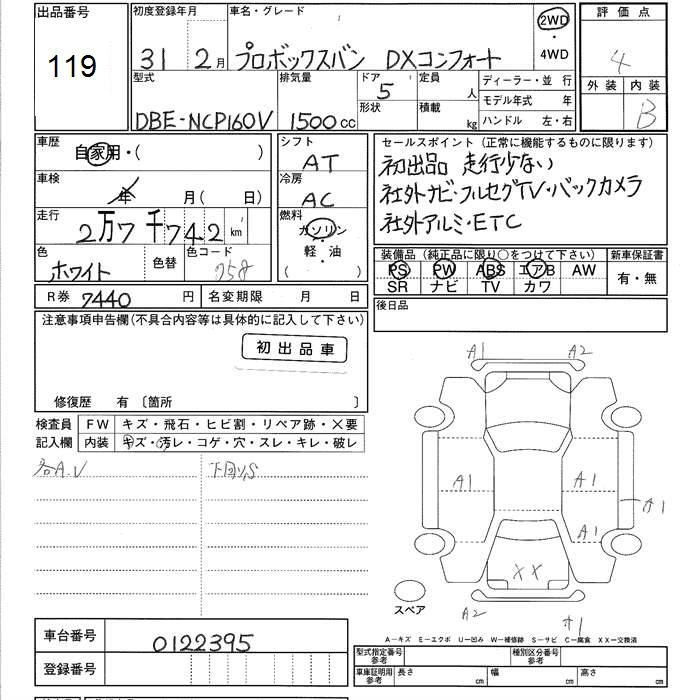 出品番号 119
初度登録年月 31年 2月
車名・グレード プロボックスバン DXコンフォート
2WD・4WD
評価点 4
外装 内装 B
型式 DBE-NCP160V
排気量 1500cc
ドア 5
形状
定員 人
積載 kg
ディーラー・並行
モデル年式 年
ハンドル 左・右
車歴 自家用・( )
車検 年 月(日)
走行 2万7千742km
色 ホワイト 色替 色コード 058
R券 7440円 名変期限 月 日
シフト AT
冷房 AC
燃料 ガソリン・軽・油 ( )
セールスポイント(正常に機能するものに限ります)
初出品 走行少ない
社外ナビ・フルセグTV・バックカメラ
社外アルミ・ETC
装備品(純正品に限り○をつけて下さい) 新車保証書
PS PW ABS エアB AW 有・無
SR ナビ TV カワ
後日品
注意事項申告欄(不具合内容等は具体的に記入して下さい)
初出品車
修復歴 有 〔箇所 〕
検査員記入欄
FW キズ・飛石・ヒビ割・リペア跡・×要
内装 キズ・汚レ・コゲ・穴・スレ・キレ・破レ
各A.U 下回りS
A1 A2
A1 A1 A1
A1
XX
A2 A1
スペア
A－キズ E－エクボ U－凹み W－補修跡 S－サビ C－腐食 XX－交換済
車台番号 0122395
登録番号
型式指定番号 参考 種別区分番号 参考
車庫証明用 参考 長さ cm 幅 cm 高さ cm